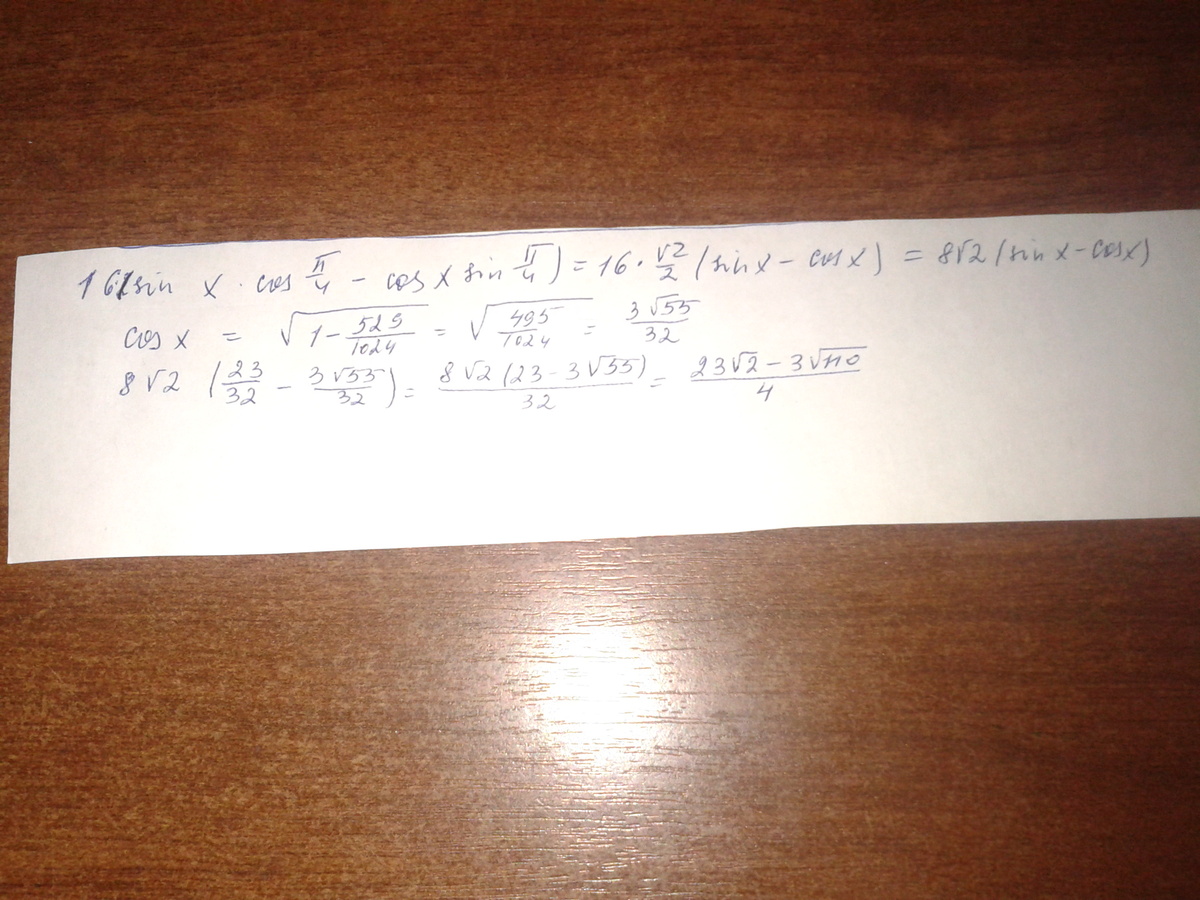 16(sin x · cos π/4 − cos x sin π/4) = 16 · √2/2 (sin x − cos x) = 8√2 (sin x − cos x)
cos x = √(1 − 529/1024) = √(495/1024) = 3√55/32
8√2 (23/32 − 3√55/32) = 8√2 (23 − 3√55)/32 = (23√2 − 3√110)/4